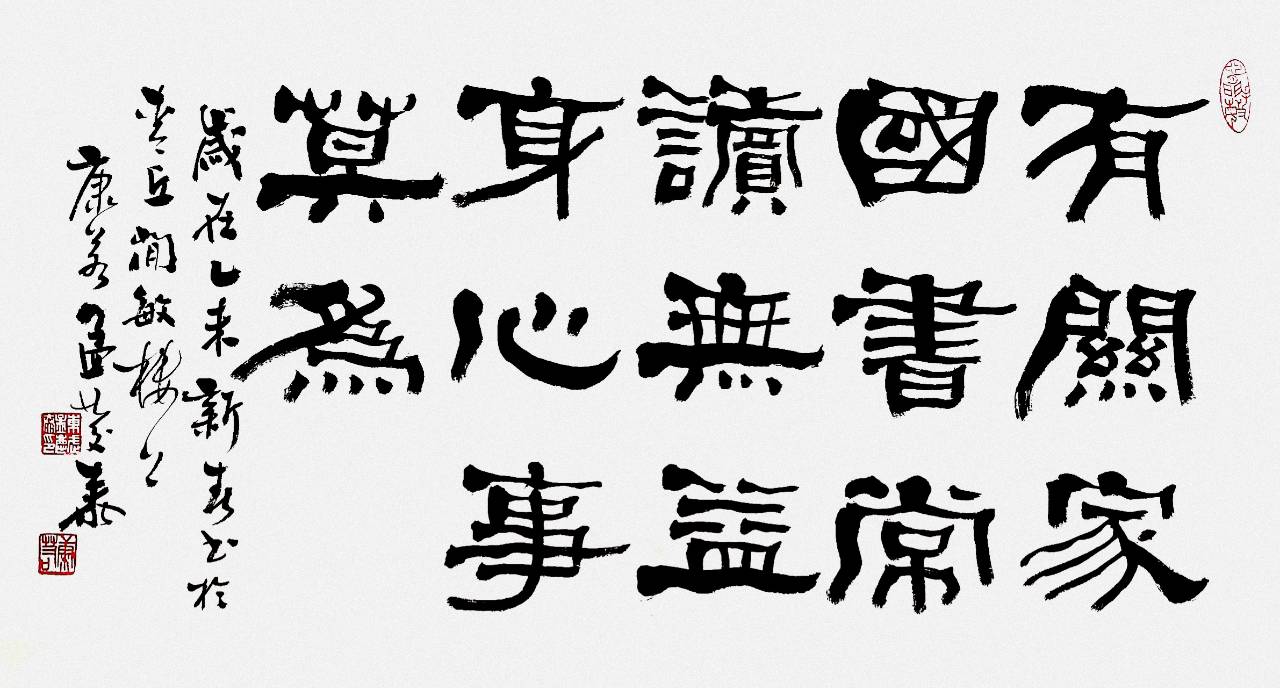 有關家
國書常
讀無益
身心事
莫為
歲在乙未新春書於
丘敏樓
康若